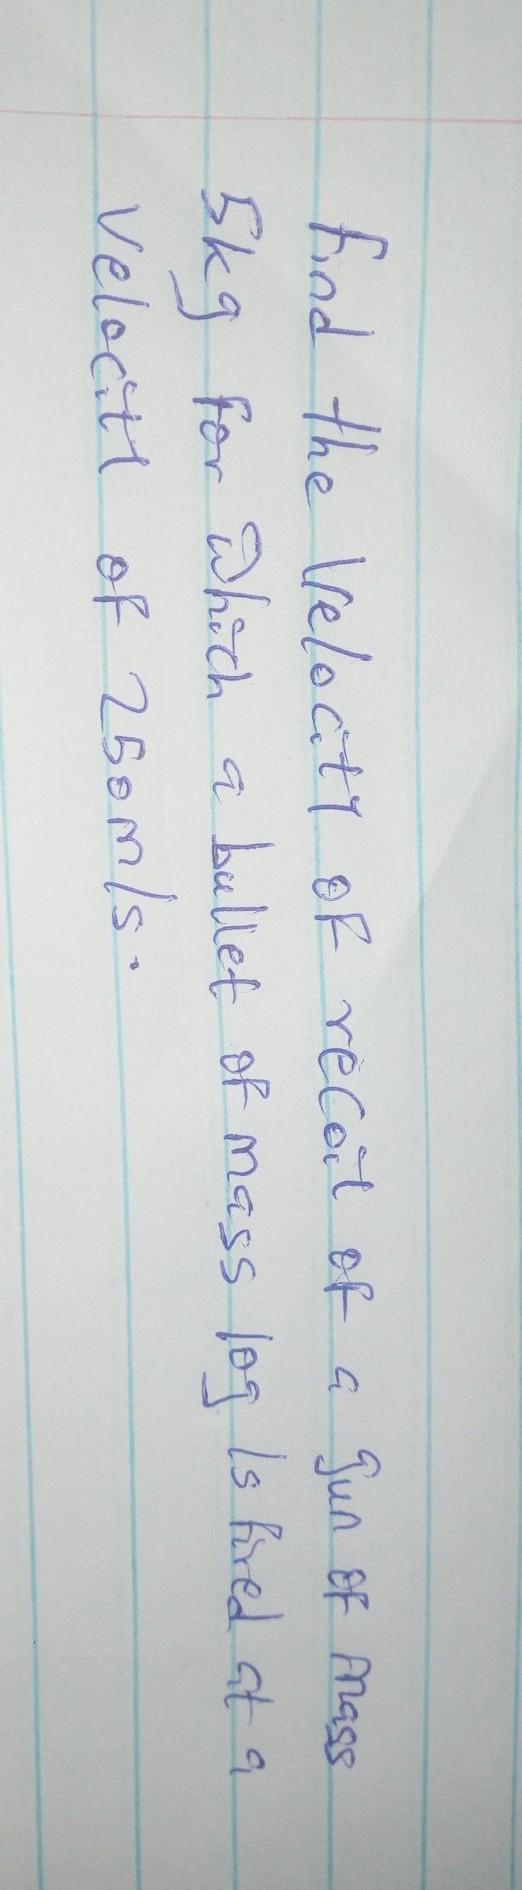 find the velocity of recoil of a gun of mass
5kg for which a bullet of mass 10g is fired at a
velocity of 250m/s.